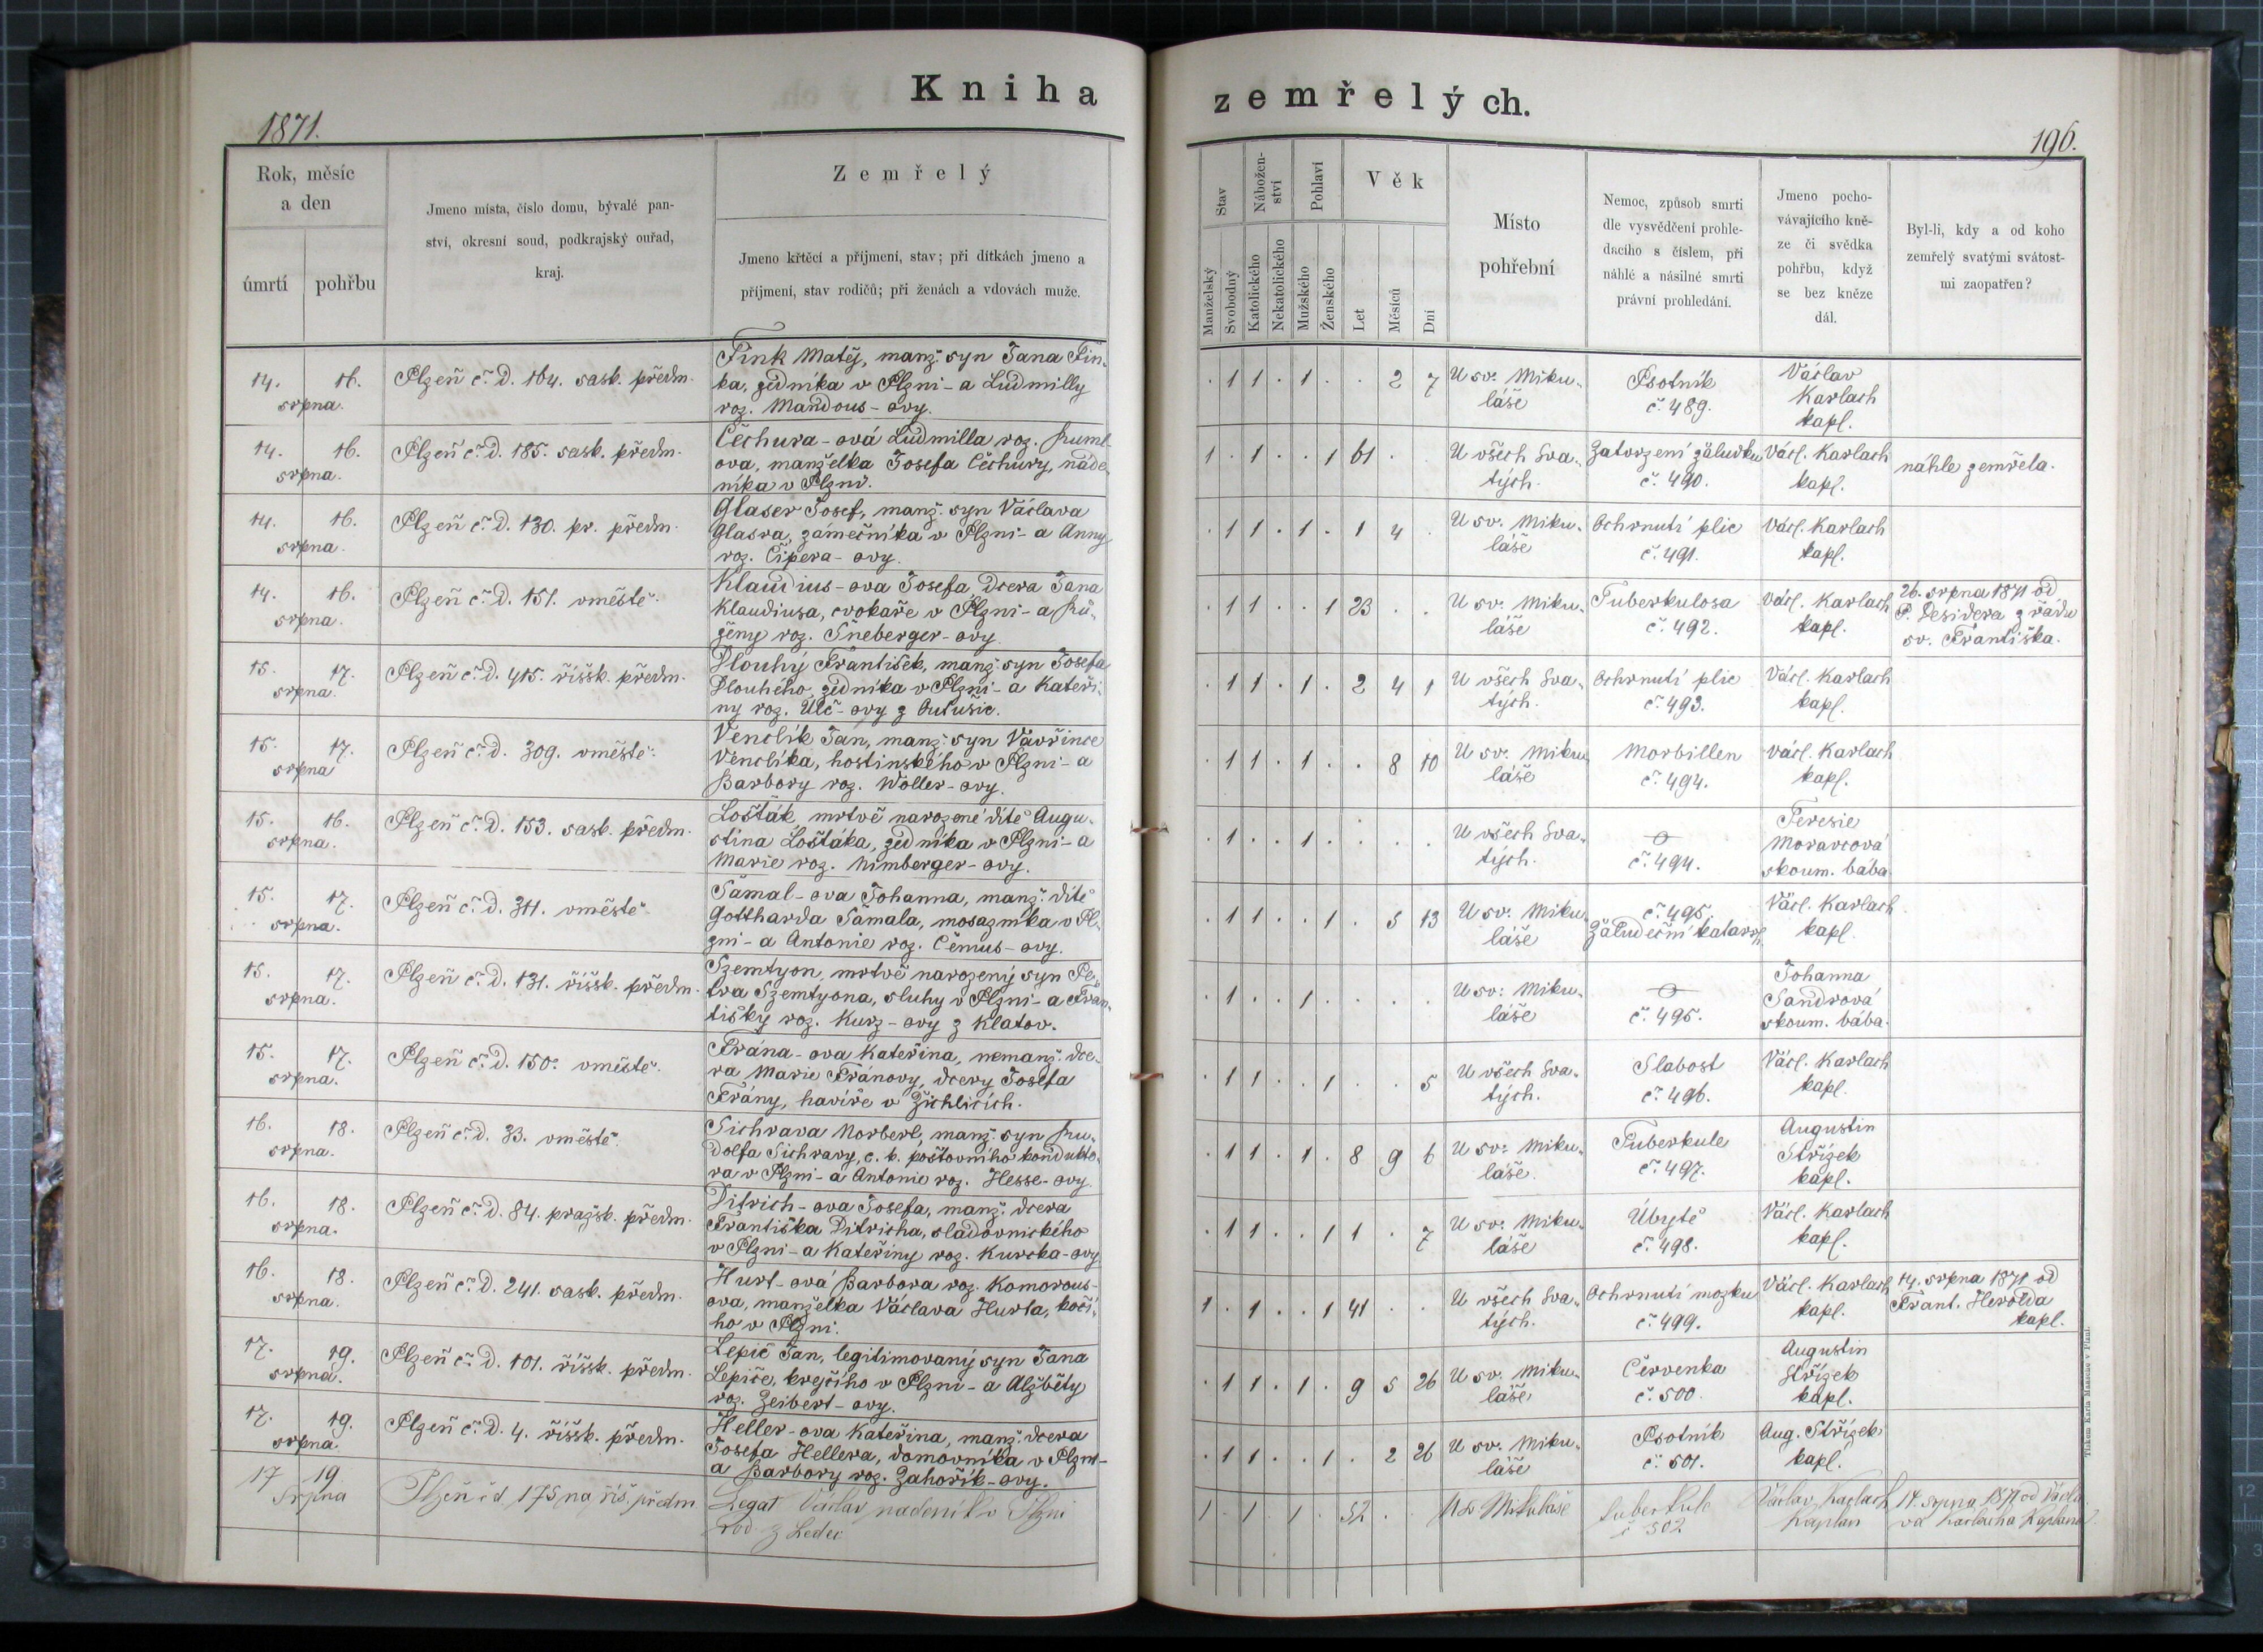 Kniha zemřelých.
1871.
196.
Rok, měsíc
a den
úmrtí
pohřbu
Jmeno místa, číslo domu, bývalé pan-
ství, okresní soud, podkrajský ouřad,
kraj.
Zemřelý
Jmeno křtěcí a příjmení, stav; při dítkách jmeno a
příjmení, stav rodičů; při ženách a vdovách muže.
Stav
Manželský
Svobodný
Nábožen-
ství
Katolického
Nekatolického
Pohlaví
Mužského
Ženského
Věk
Let
Měsíců
Dní
Místo
pohřební
Nemoc, způsob smrti
dle vysvědčení prohle-
dacího s číslem, při
náhlé a násilné smrti
právní prohledání.
Jmeno pocho-
vávajícího kně-
ze či svědka
pohřbu, když
se bez kněze
dál.
Byl-li, kdy a od koho
zemřelý svatými svátost-
mi zaopatřen?
14. 16.
srpna.
Plzeň č. D. 164. sask. předm.
Fink Matěj, manž. syn Jana Fin-
ka, zedníka v Plzni - a Ludmilly
roz. Mandous-ovy.
. 1 1 . 1 . . 2 7
U sv. Miku-
láše
Psotník
č. 489.
Václav
Karlach
kapl.
14. 16.
srpna.
Plzeň č. D. 185. sask. předm.
Čechura-ová Ludmilla roz. Ruml-
ova, manželka Josefa Čechury, náde-
níka v Plzni.
1 . 1 . . 1 61 . .
U všech Sva-
tých.
Zatvrzení žaludku
č. 490.
Václ. Karlach
kapl.
náhle zemřela.
14. 16.
srpna.
Plzeň č. D. 130. pr. předm.
Glaser Josef, manž. syn Václava
Glasra, zámečníka v Plzni - a Anny
roz. Čipera-ovy.
. 1 1 . 1 . 1 4 .
U sv. Miku-
láše
Ochrnutí plic
č. 491.
Václ. Karlach
kapl.
14. 16.
srpna.
Plzeň č. D. 151. v městě.
Klaudius-ova Josefa, dcera Jana
Klaudiusa, cvokaře v Plzni - a Rů-
ženy roz. Šneberger-ovy.
. 1 1 . . 1 23 . .
U sv. Miku-
láše
Tuberkulosa
č. 492.
Václ. Karlach
kapl.
26. srpna 1871 od
P. Desidera z řádu
sv. Františka.
15. 17.
srpna.
Plzeň č. D. 415. říšsk. předm.
Dlouhý František, manž. syn Josefa
Dlouhého, zedníka v Plzni - a Kateři-
ny roz. Ulč-ovy z Outusic.
. 1 1 . 1 . 2 4 1
U všech Sva-
tých.
Ochrnutí plic
č. 493.
Václ. Karlach
kapl.
15. 17.
srpna
Plzeň č. D. 309. v městě.
Venclík Jan, manž. syn Vavřince
Venclíka, hostinského v Plzni - a
Barbory roz. Woller-ovy.
. 1 1 . 1 . . 8 10
U sv. Miku-
láše
Morbillen
č. 494.
Václ. Karlach
kapl.
15. 16.
srpna.
Plzeň č. D. 153. sask. předm.
Lošťák, mrtvě narozené dítě Augu-
stina Lošťáka, zedníka v Plzni - a
Marie roz. Nimberger-ovy.
. 1 . . 1 . . . .
U všech Sva-
tých.
č. 494.
Teresie
Moravcová
skoum. bába.
15. 17.
srpna.
Plzeň č. D. 311. v městě.
Šamal-ova Johanna, manž. dítě
Gottharda Šamala, mosazníka v Pl-
zni - a Antonie roz. Čemus-ovy.
. 1 1 . . 1 . 5 13
U sv. Miku-
láše
č. 495.
Žaludeční katarrh
Václ. Karlach
kapl.
15. 17.
srpna.
Plzeň č. D. 131. říšsk. předm.
Szemtyon, mrtvě narozený syn Pe-
tra Szemtyona, sluhy v Plzni - a Fran-
tišky roz. Kurz-ovy z Klatov.
. 1 . . 1 . . . .
U sv. Miku-
láše
č. 495.
Johanna
Sandrová
skoum. bába.
15. 17.
srpna.
Plzeň č. D. 150. v městě.
Frána-ova Kateřina, nemanž. dce-
ra Marie Fránovy, dcery Josefa
Frány, havíře v Žichlicích.
. 1 1 . . 1 . . 5
U všech Sva-
tých.
Slabost
č. 496.
Václ. Karlach
kapl.
16. 18.
srpna.
Plzeň č. D. 33. v městě.
Sichrava Norbert, manž. syn Ru-
dolfa Sichravy, c. k. poštovního kondukto-
ra v Plzni - a Antonie roz. Hesse-ovy.
. 1 1 . 1 . 8 9 6
U sv. Miku-
láše.
Tuberkule
č. 497.
Augustin
Střízek
kapl.
16. 18.
srpna.
Plzeň č. D. 84. pražsk. předm.
Ditrich-ova Josefa, manž. dcera
Františka Ditricha, sládovnického
v Plzni - a Kateřiny roz. Kurcka-ovy
. 1 1 . . 1 1 . 7
U sv. Miku-
láše
Úbytě
č. 498.
Václ. Karlach
kapl.
16. 18.
srpna.
Plzeň č. D. 241. sask. předm.
Hurt-ová Barbora roz. Komorous-
ova, manželka Václava Hurta, kočí-
ho v Plzni.
1 . 1 . . 1 41 . .
U všech Sva-
tých.
Ochrnutí mozku
č. 499.
Václ. Karlach
kapl.
14. srpna 1871 od
Frant. Herolda
kapl.
17. 19.
srpna.
Plzeň č. D. 101. říšsk. předm.
Lepič Jan, legitimovaný syn Jana
Lepiče, krejčího v Plzni - a Alžběty
roz. Zeibert-ovy.
. 1 1 . 1 . 9 5 26
U sv. Miku-
láše
Červenka
č. 500.
Augustin
Střízek
kapl.
17. 19.
srpna.
Plzeň č. D. 4. říšsk. předm.
Heller-ova Kateřina, manž. dcera
Josefa Hellera, domovníka v Plzni -
a Barbory roz. Zahořík-ovy.
. 1 1 . . 1 . 2 26
U sv. Miku-
láše
Psotník
č. 501.
Aug. Střízek
kapl.
17 19
Srpna
Plzeň čd 175 na říš. předm
Legat Václav nadeník v Plzni
rod. z Ledec
1 . 1 . 1 . 52 . .
U sv Mikuláše
tuberkule
č 502
Václav Karlach
Kaplan
14. srpna 1871 od Václa-
va Karlacha Kaplana.
Tiskem Karla Maasche v Plzni.